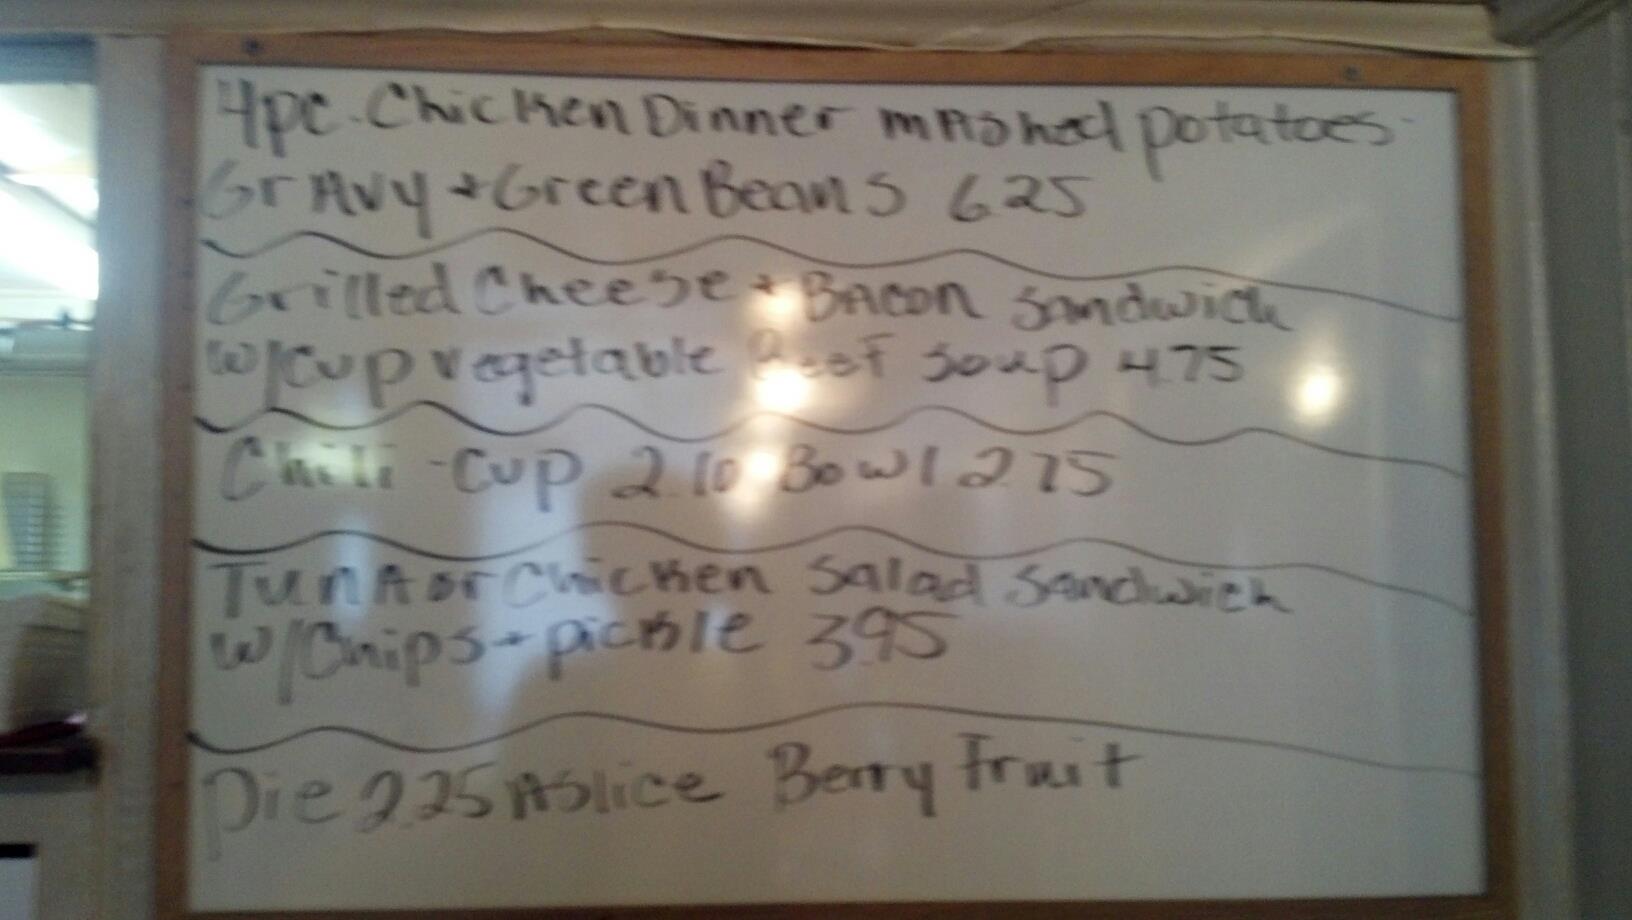 4pc. Chicken Dinner mAshed potatoes
GrAvy + Green Beans 6.25
Grilled Cheese + BAcon Sandwich
w/cup vegetable Beef Soup 4.75
Chili - Cup 2.10 Bowl 2.75
TunA or Chicken Salad Sandwich
w/Chips + pickle 3.95
Pie 2.25 A Slice Berry Fruit